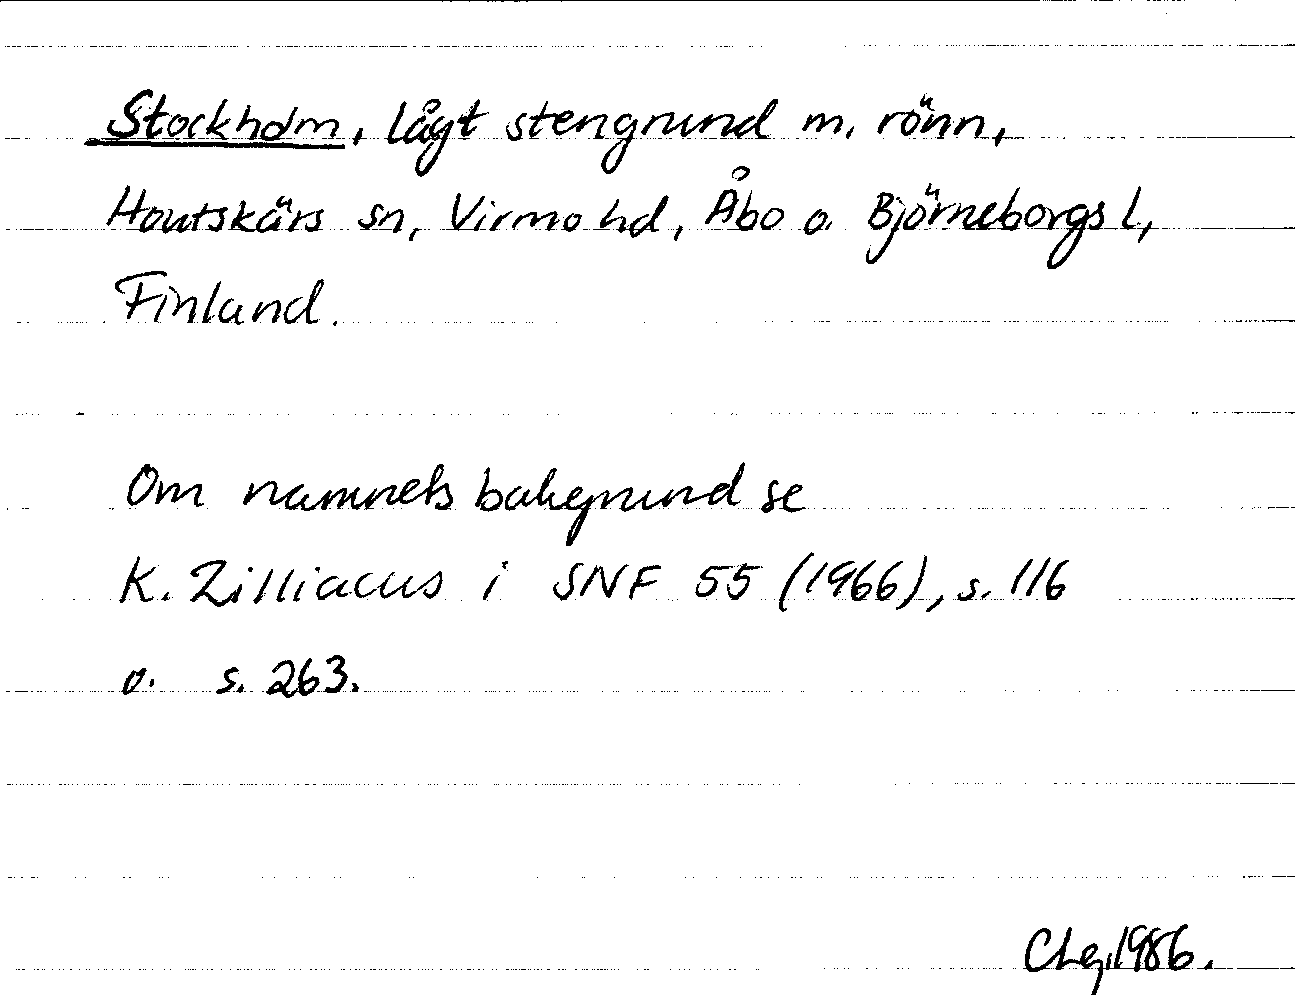 Stockholm, lågt stengrund m. rönn,
Houtskärs sn, Virmo hd, Åbo o. Björneborgs l,
Finland.
Om namnets bakgrund se
K. Zilliacus i SNF 55 (1966), s. 116
o. s. 263.
1986.